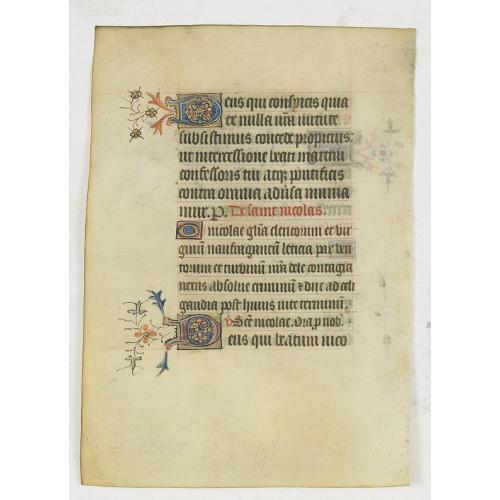 Deus qui conspicis quia
ex nulla nra uirtute
subsistimus concede propicius
ut intercessione beati martini
confessoris tui atqz pontificis
contra omnia aduersa munia
mur. P. De saint nicolas.
O nicolae glia clericorum et uir
ginum naufragantum leticia pax uen
torum et turbinum nra dele contagia
nexus absolue criminum & duc ad celi
gaudia post huius uite terminum.
V Sce nicolae. Ora p nob.
Deus qui beatum nico